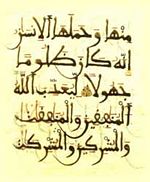 منها وحملها الانسن
انه كان ظلوما
جهولا ليعذب الله
المنفقين والمنفقت
والمشركين والمشركت